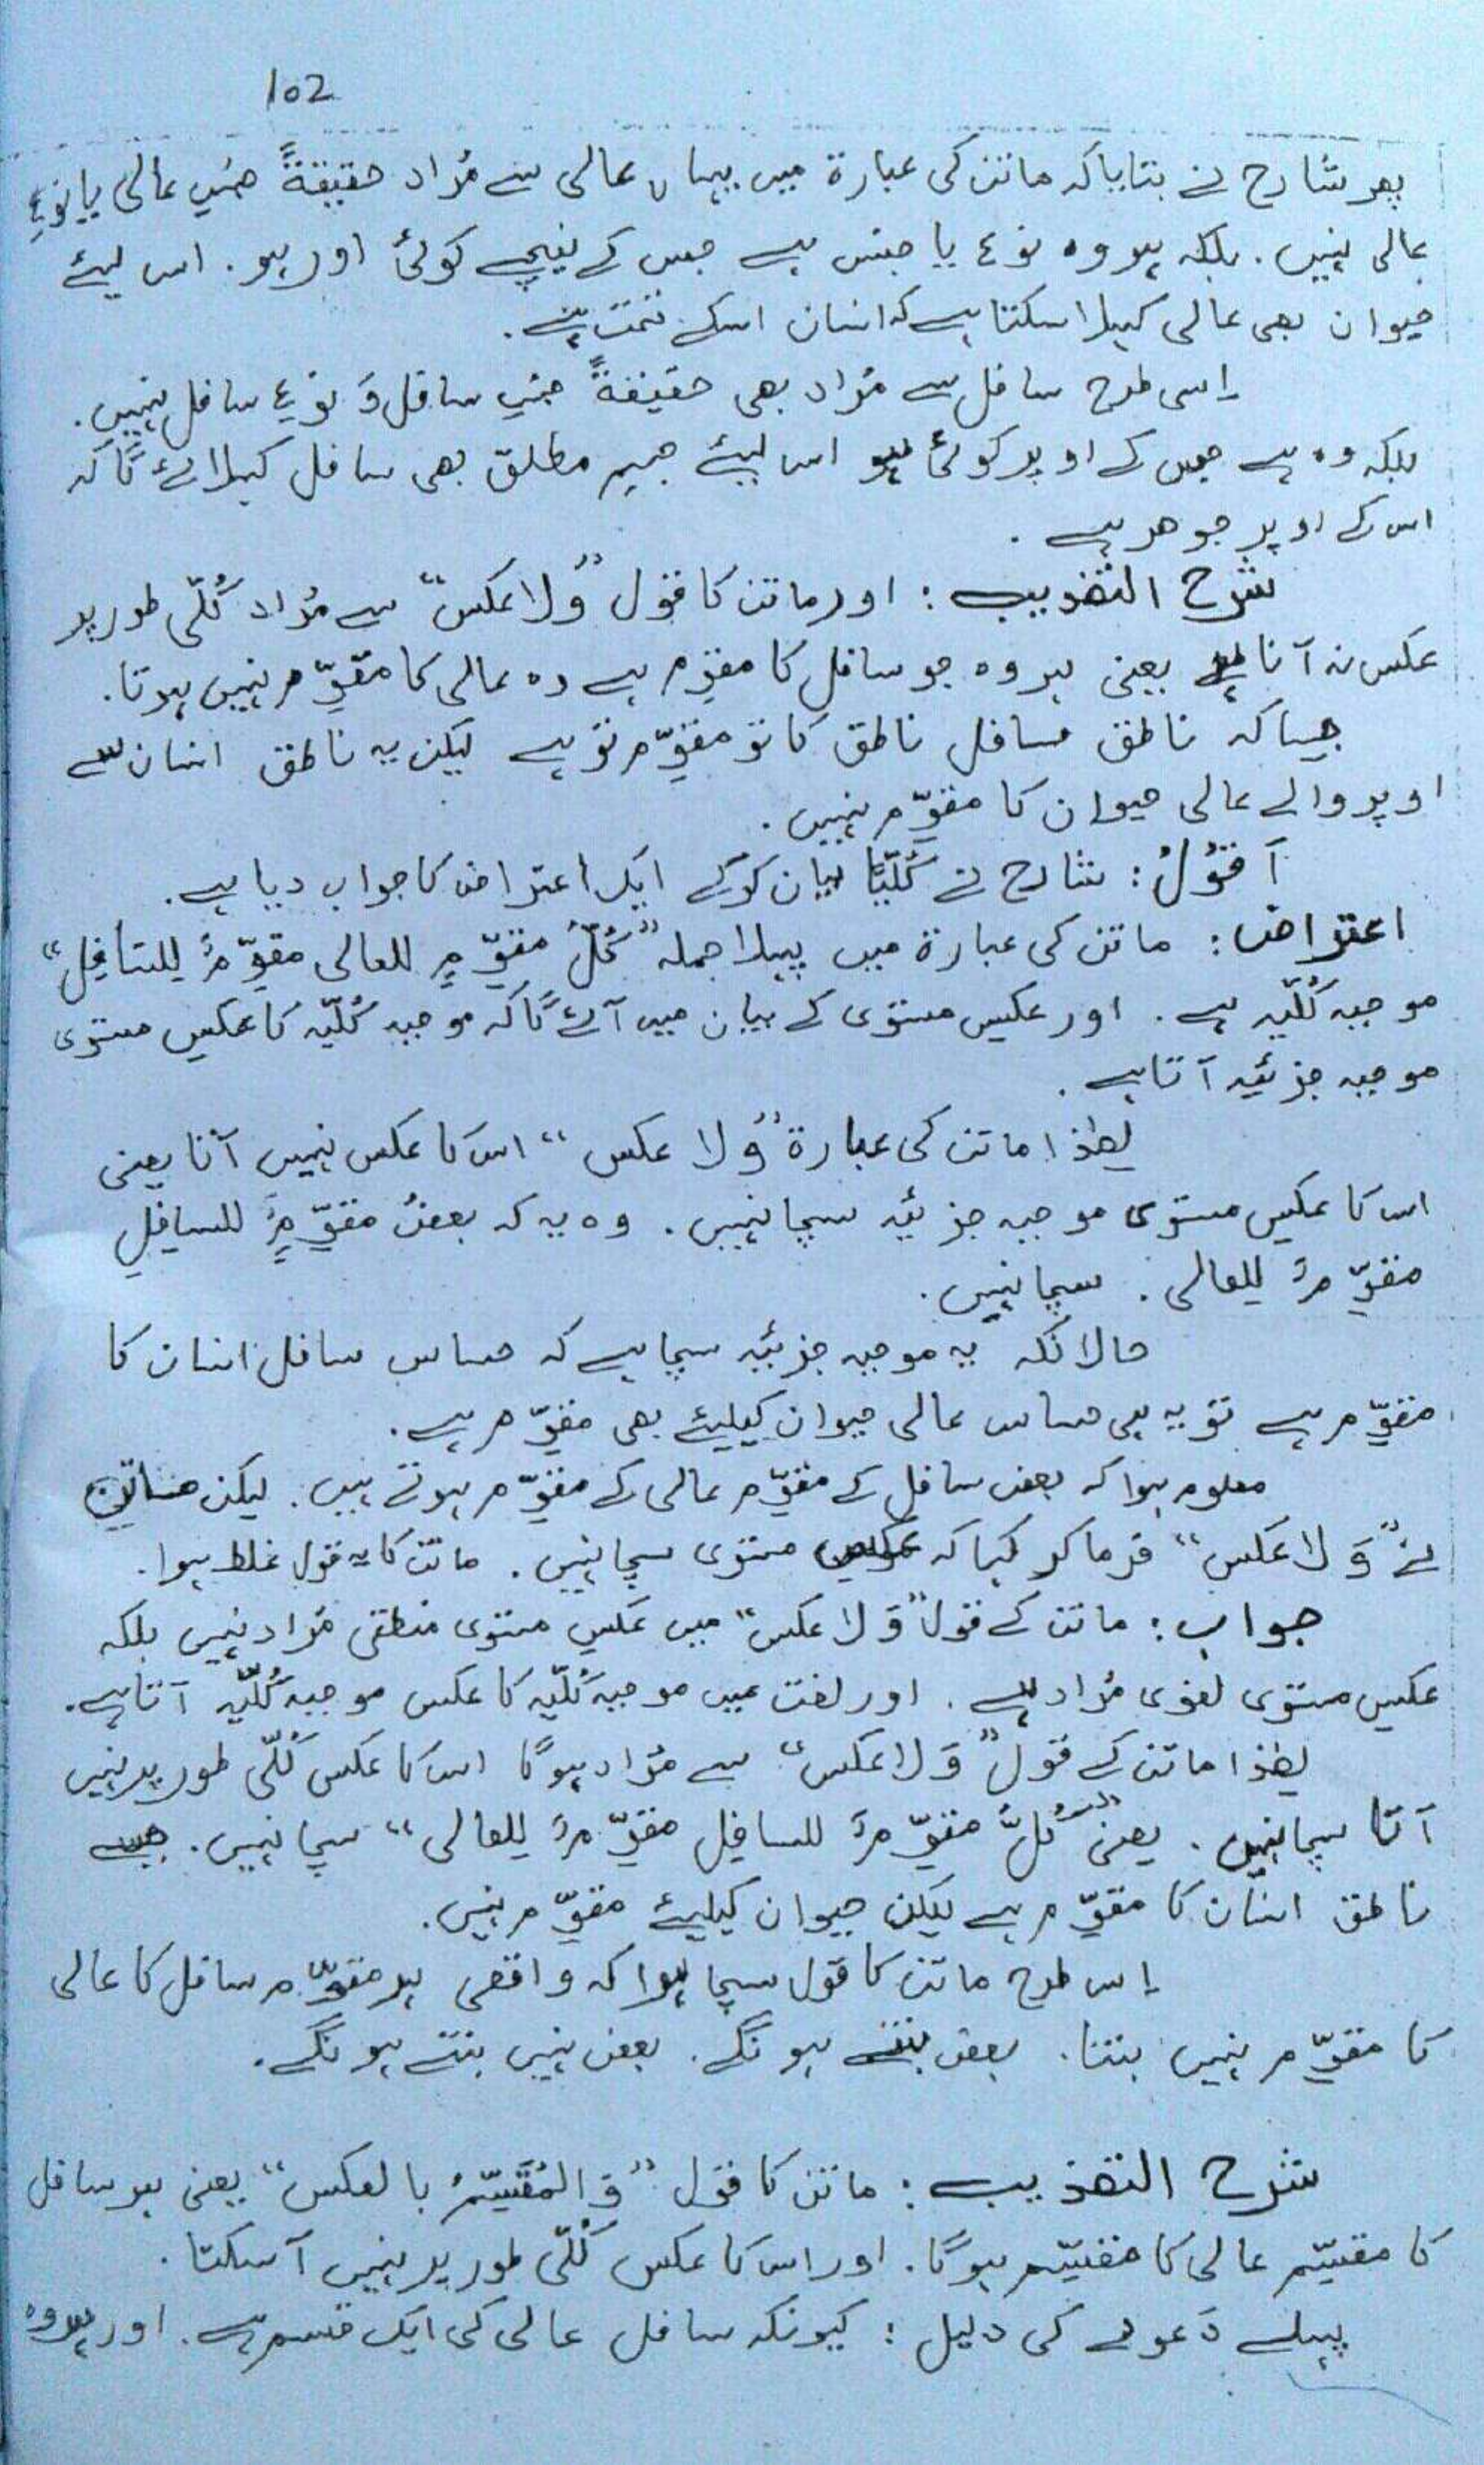 102
پھر شارح نے بتایا کہ ماتن کی عبارة میں یہاں عالی سے مُراد حقیقةً جنسِ عالی یا نوعِ
عالی نہیں. بلکہ ہر وہ نوع یا جنس ہے جس کے نیچے کوئی اور ہو. اس لیئے
حیوان بھی عالی کہلا سکتا ہے کہ انسان اسکے تحت ہے.
اِسی طرح سافل سے مُراد بھی حقیقةً جنسِ سافل وَ نوعِ سافل نہیں.
بلکہ وہ ہے جس کے اوپر کوئی ہو اس لیئے جسمِ مطلق بھی سافل کہلائے گا کہ
اس کے اوپر جوھر ہے.
شرح التھذیب: اور ماتن کا قول "وَلا عکس" سے مُراد کُلّی طور پر
عکس نہ آنا ہے یعنی ہر وہ جو سافل کا مقوِّم ہے وہ عالی کا مقوِّم نہیں ہوتا.
جیسا کہ ناطق سافل ناطق کا تو مقوِّم تو ہے لیکن یہ ناطق انسان سے
اوپر والے عالی حیوان کا مقوِّم نہیں.
اَقُوْلُ: شارح نے کُلّیًّا بیان کرکے ایک اعتراض کا جواب دیا ہے.
اعتراض: ماتن کی عبارة میں پہلا جملہ "کُلُّ مقوِّمٍ للعالی مقوِّمٌ لِلسَّافِلِ"
موجبہ کُلّیہ ہے. اور عکسِ مستوی کے بیان میں آئے گا کہ موجبہ کُلّیّہ کا عکسِ مستوی
موجبہ جزئیہ آتا ہے.
لھٰذا ماتن کی عبارة "وَلا عکس" اس کا عکس نہیں آتا یعنی
اس کا عکسِ مستوی موجبہ جزئیہ سچا نہیں. وہ یہ کہ بعضُ مقوِّمٍ للسافِلِ
مقوِّمٌ لِلعالی. سچا نہیں.
حالانکہ یہ موجبہ جزئیہ سچا ہے کہ حساس سافل انسان کا
مقوِّم ہے تو یہ ہی حساس عالی حیوان کیلیئے بھی مقوِّم ہے.
معلوم ہوا کہ بعض سافل کے مقوِّم عالی کے مقوِّم ہوتے ہیں. لیکن ماتن
نے "وَلا عکس" فرما کر کہا کہ عکسِ مستوی سچا نہیں. ماتن کا یہ قول غلط ہوا.
جواب: ماتن کے قول "وَلا عکس" میں عکسِ مستوی منطقی مُراد نہیں بلکہ
عکسِ مستوی لغوی مُراد ہے. اور لغت میں موجبہ کُلّیّہ کا عکس موجبہ کُلّیّہ آتا ہے.
لھٰذا ماتن کے قول "وَلا عکس" سے مُراد ہوگا اس کا عکس کُلّی طور پر نہیں
آتا سچا نہیں. یعنی "کُلُّ مقوِّمٌ للسافِلِ مقوِّمٌ لِلعالی" سچا نہیں. جیسے
ناطق انسان کا مقوِّم ہے لیکن حیوان کیلیئے مقوِّم نہیں.
اِس طرح ماتن کا قول سچا ہوا کہ واقعی ہر مقوِّم سافل کا عالی
کا مقوِّم نہیں بنتا. بعض بنتے ہونگے. بعض نہیں بنتے ہونگے.
شرح التھذیب: ماتن کا قول "وَالمُقَسِّمُ بالعکس" یعنی ہر سافل
کا مقسِّم عالی کا مقسِّم ہوگا. اور اس کا عکس کُلّی طور پر نہیں آسکتا.
پہلے دَعوے کی دلیل: کیونکہ سافل عالی کی ایک قسم ہے. اور ہر وہ